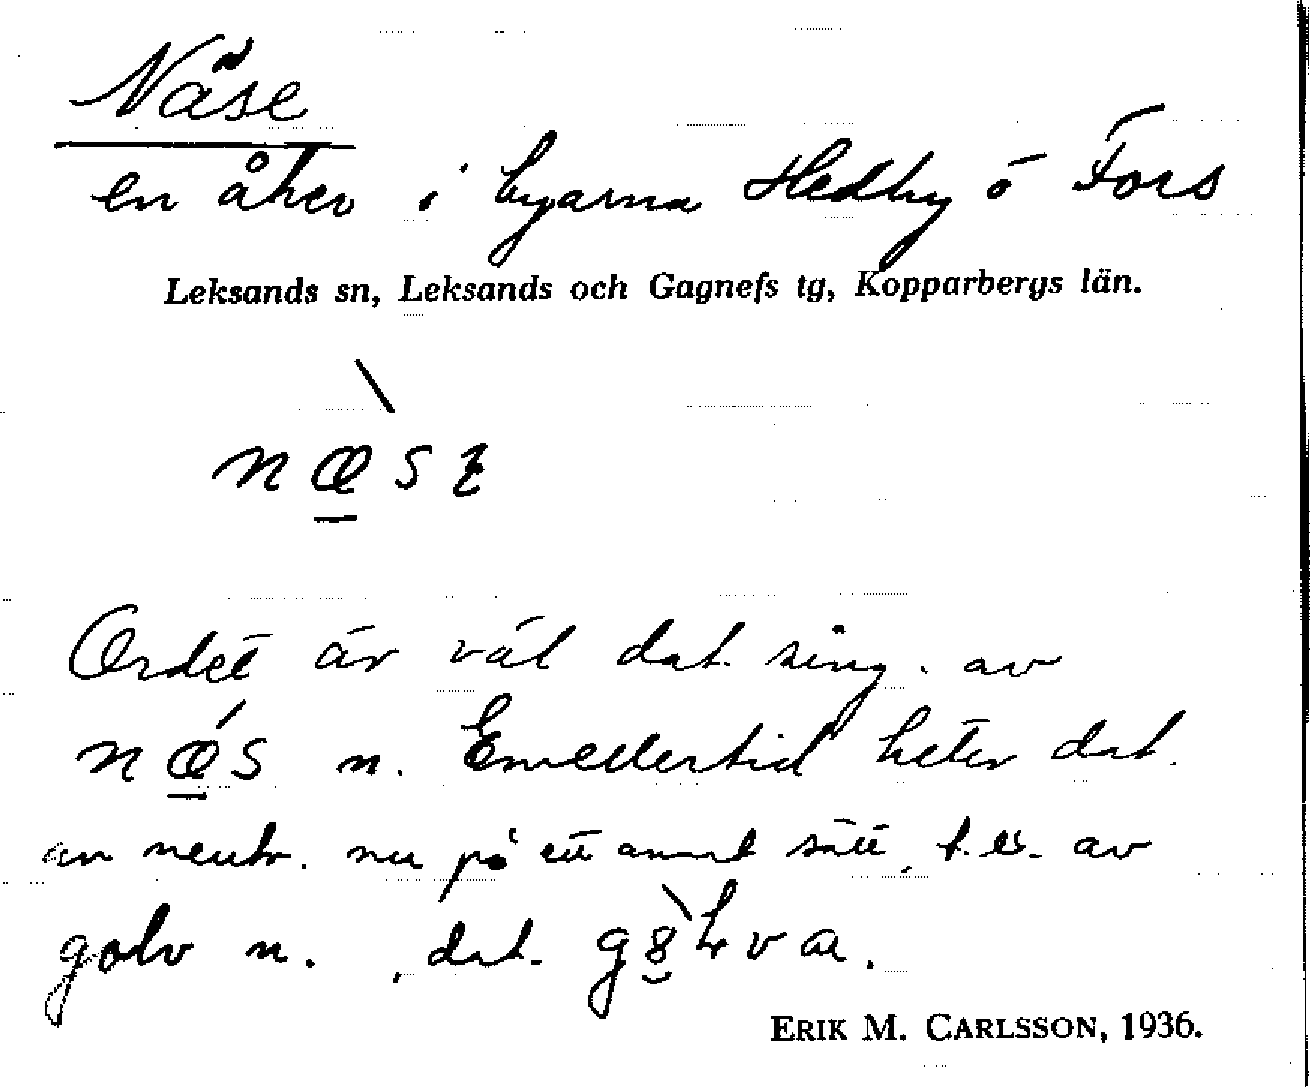 Näse
en åker i byarna Hedby o Fors
Leksands sn, Leksands och Gagnefs tg, Kopparbergs län.
Ordet är väl dat. sing. av
n. Emellertid heter dat.
av neutr. nu på ett annat sätt, t.ex. av
golv n., dat.
ERIK M. CARLSSON, 1936.